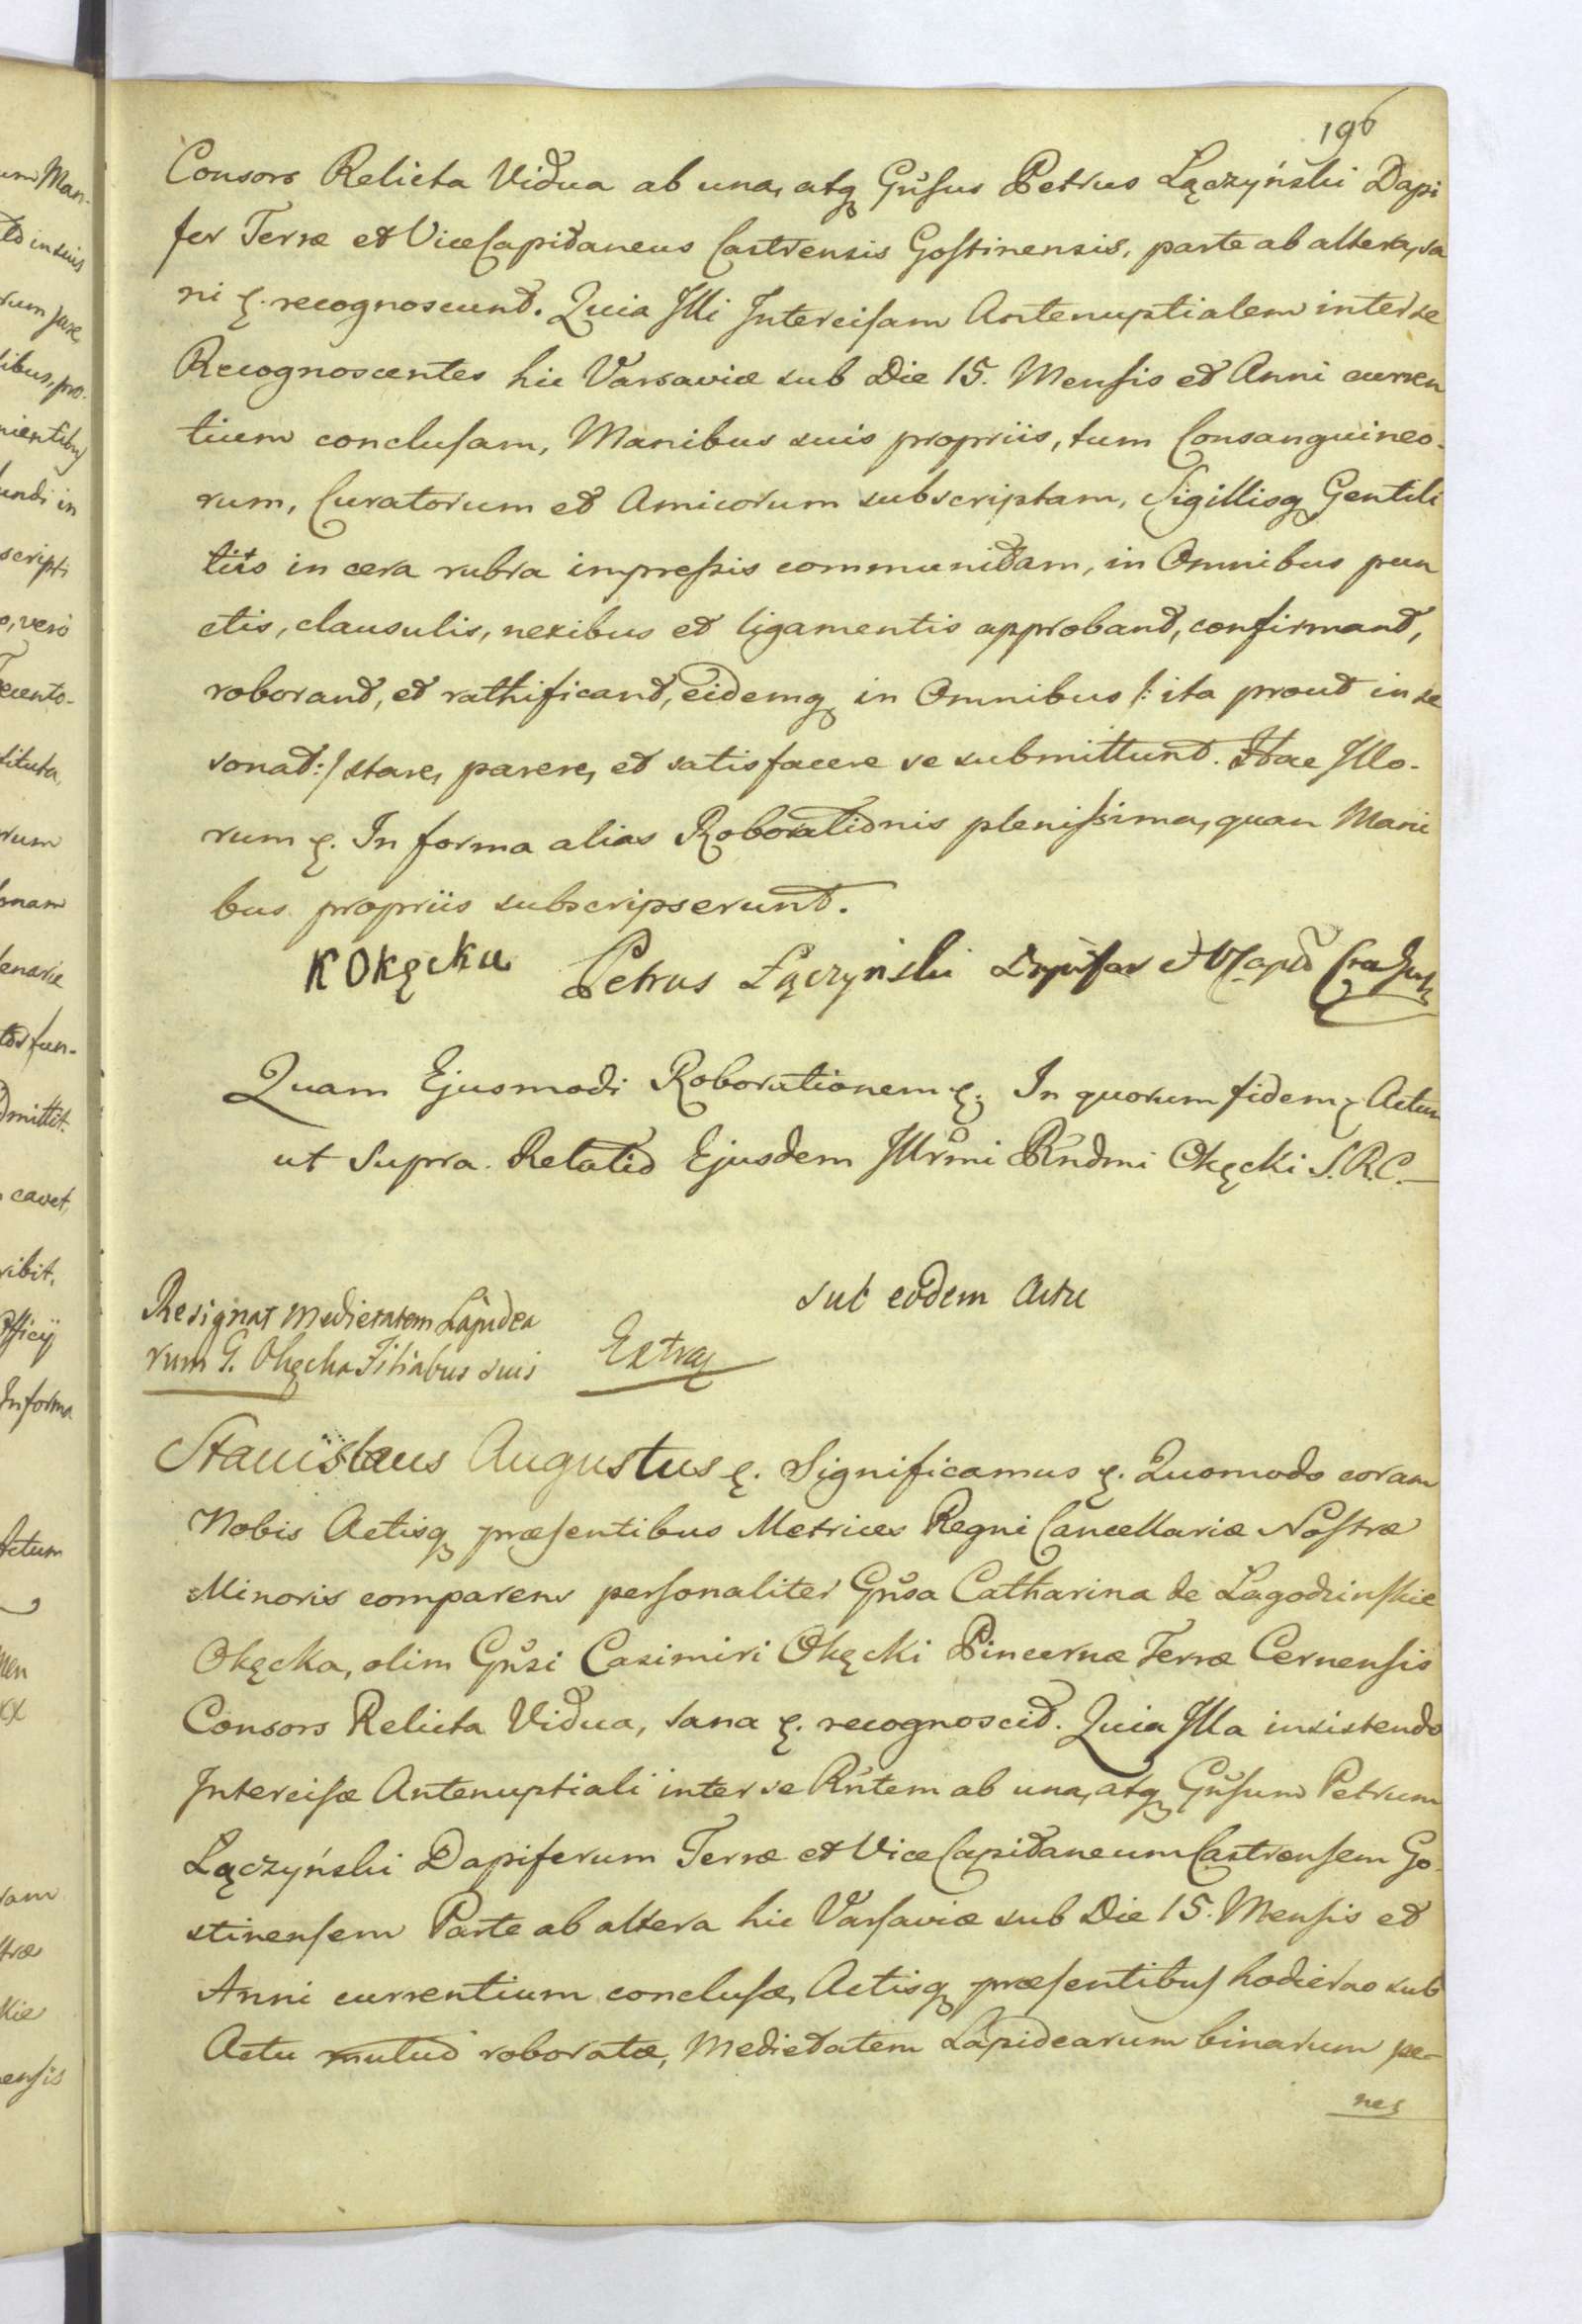 196
Consors Relicta Vidua ab una, atq Gnsus Petrus Łączyński Dapi
fer Terræ et ViceCapitaneus Castrensis Gostinensis, parte ab altera, sa
ni &. recognoscunt. Quia Illi Intercisam Antenuptialem inter se
Recognoscentes hic Varsaviæ sub Die 15. Mensis et Anni curren
tium conclusam, Manibus suis propriis, tum Consanguineo-
rum, Curatorum et Amicorum subscriptam, Sigillisq Gentili
tiis in cera rubra impressis communitam, in Omnibus pun
ctis, clausulis, nexibus et ligamentis approbant, confirmant,
roborant, et rathificant, eidemq in Omnibus /: ita prout in se
sonat :/ stare, parere, et satisfacere se submittunt. Hac Illo-
rum &. In forma alias Roborationis plenissima, quam Mani
bus propriis subscripserunt.
K Okęcka Petrus Łączyński Dapifer et
Quam Ejusmodi Roborationem &. In quorum fidem & Actum
ut Supra. Relatio Ejusdem Illrmi Rndmi Okęcki S.R.C.
Resignat Medietatem Lapidea
rum G. Okęcka Filiabus suis
sub eodem Actu
Extra
Stanislaus Augustus &. Significamus &. Quomodo coram
Nobis Actisq præsentibus Metrices Regni Cancellariæ Nostræ
Minoris comparens personaliter Gnsa Catharina de Łagodzinskie
Okęcka, olim Gnsi Casimiri Okęcki Pincernæ Terræ Cernensis
Consors Relicta Vidua, sana &. recognoscit. Quia Illa insistendo
Intercisæ Antenuptiali inter se Rntem ab una, atq Gnsum Petrum
Łączyński Dapiferum Terræ et ViceCapitaneum Castrensem Go
stinensem Parte ab altera hic Varsaviæ sub Die 15. Mensis et
Anni currentium conclusæ, Actisq præsentibus hodierno sub
Actu mutuo roboratæ, Medietatem Lapidearum binarum pe-
nes